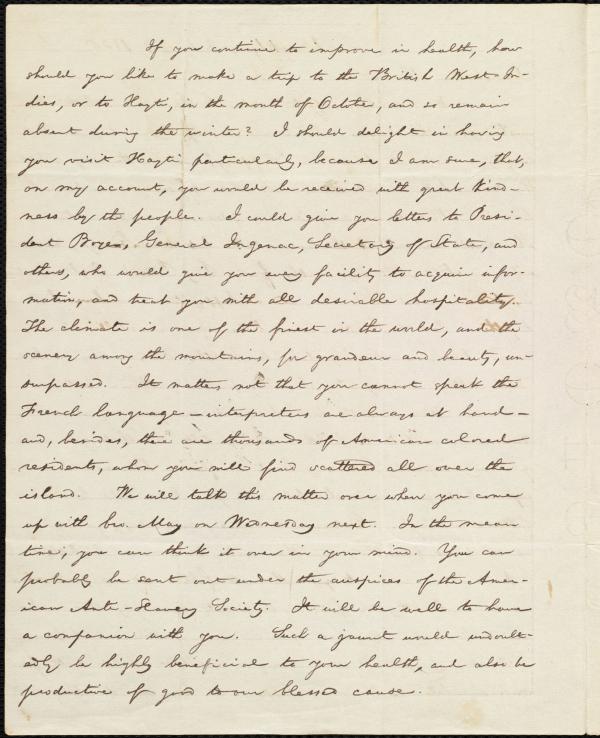 If you continue to improve in health, how
should you like to make a trip to the British West In-
dies, or to Hayti, in the month of October, and so remain
absent during the winter? I should delight in having
you visit Hayti particularly, because I am sure, that,
on my account, you would be received with great kind-
ness by the people. I could give you letters to Presi-
dent Boyer, General Inginac, Secretary of State, and
others, who would give you every facility to acquire infor-
mation, and treat you with all desirable hospitality.
The climate is one of the finest in the world, and the
scenery among the mountains, for grandeur and beauty, un-
surpassed. It matters not that you cannot speak the
French language — interpreters are always at hand —
and, besides, there are thousands of American colored
residents, whom you will find scattered all over the
island. We will talk this matter over when you come
up with bro. May on Wednesday next. In the mean
time, you can think it over in your mind. You can
probably be sent out under the auspices of the Amer-
ican Anti-Slavery Society. It will be well to have
a companion with you. Such a jaunt would undoubt-
edly be highly beneficial to your health, and also be
productive of good to our blessed cause.